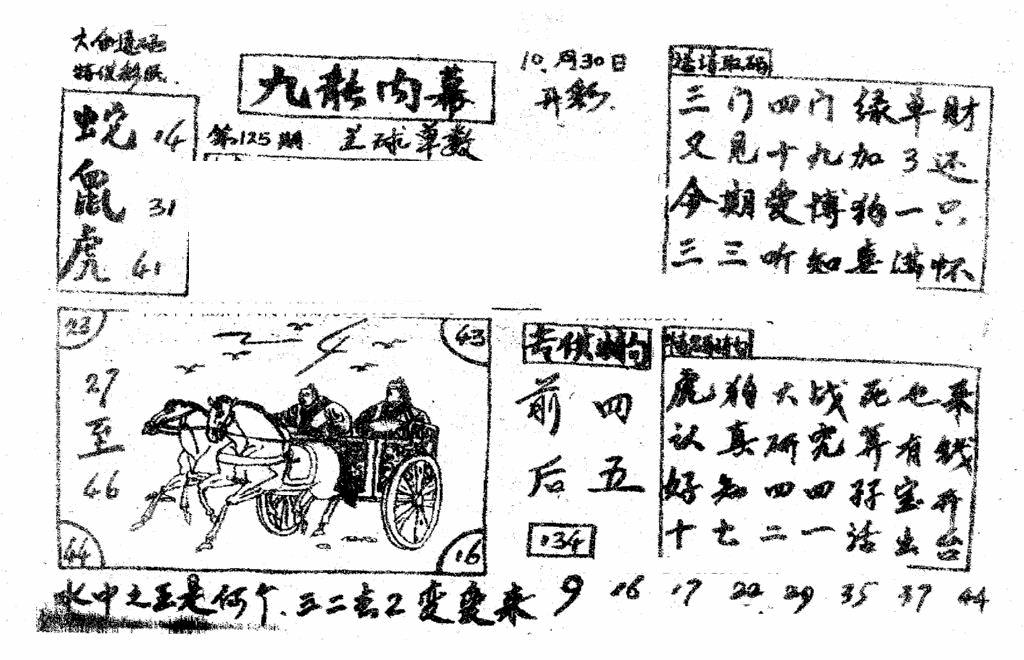 九龙内幕
10月30日
开彩.
第125期
单数
蛇 14
鼠 31
虎 41
三门四门绿单财
又见十九加了还
今期爱博狗一只
三三听知喜满怀
23
43
27
至
46
44
16
前四
后五
134
虎狗大战死也来
认真研究算有钱
好知四四孖宝开
十七二一话出台
水中之王是何个.三二去2变变来
9 16 17 22 29 35 37 44